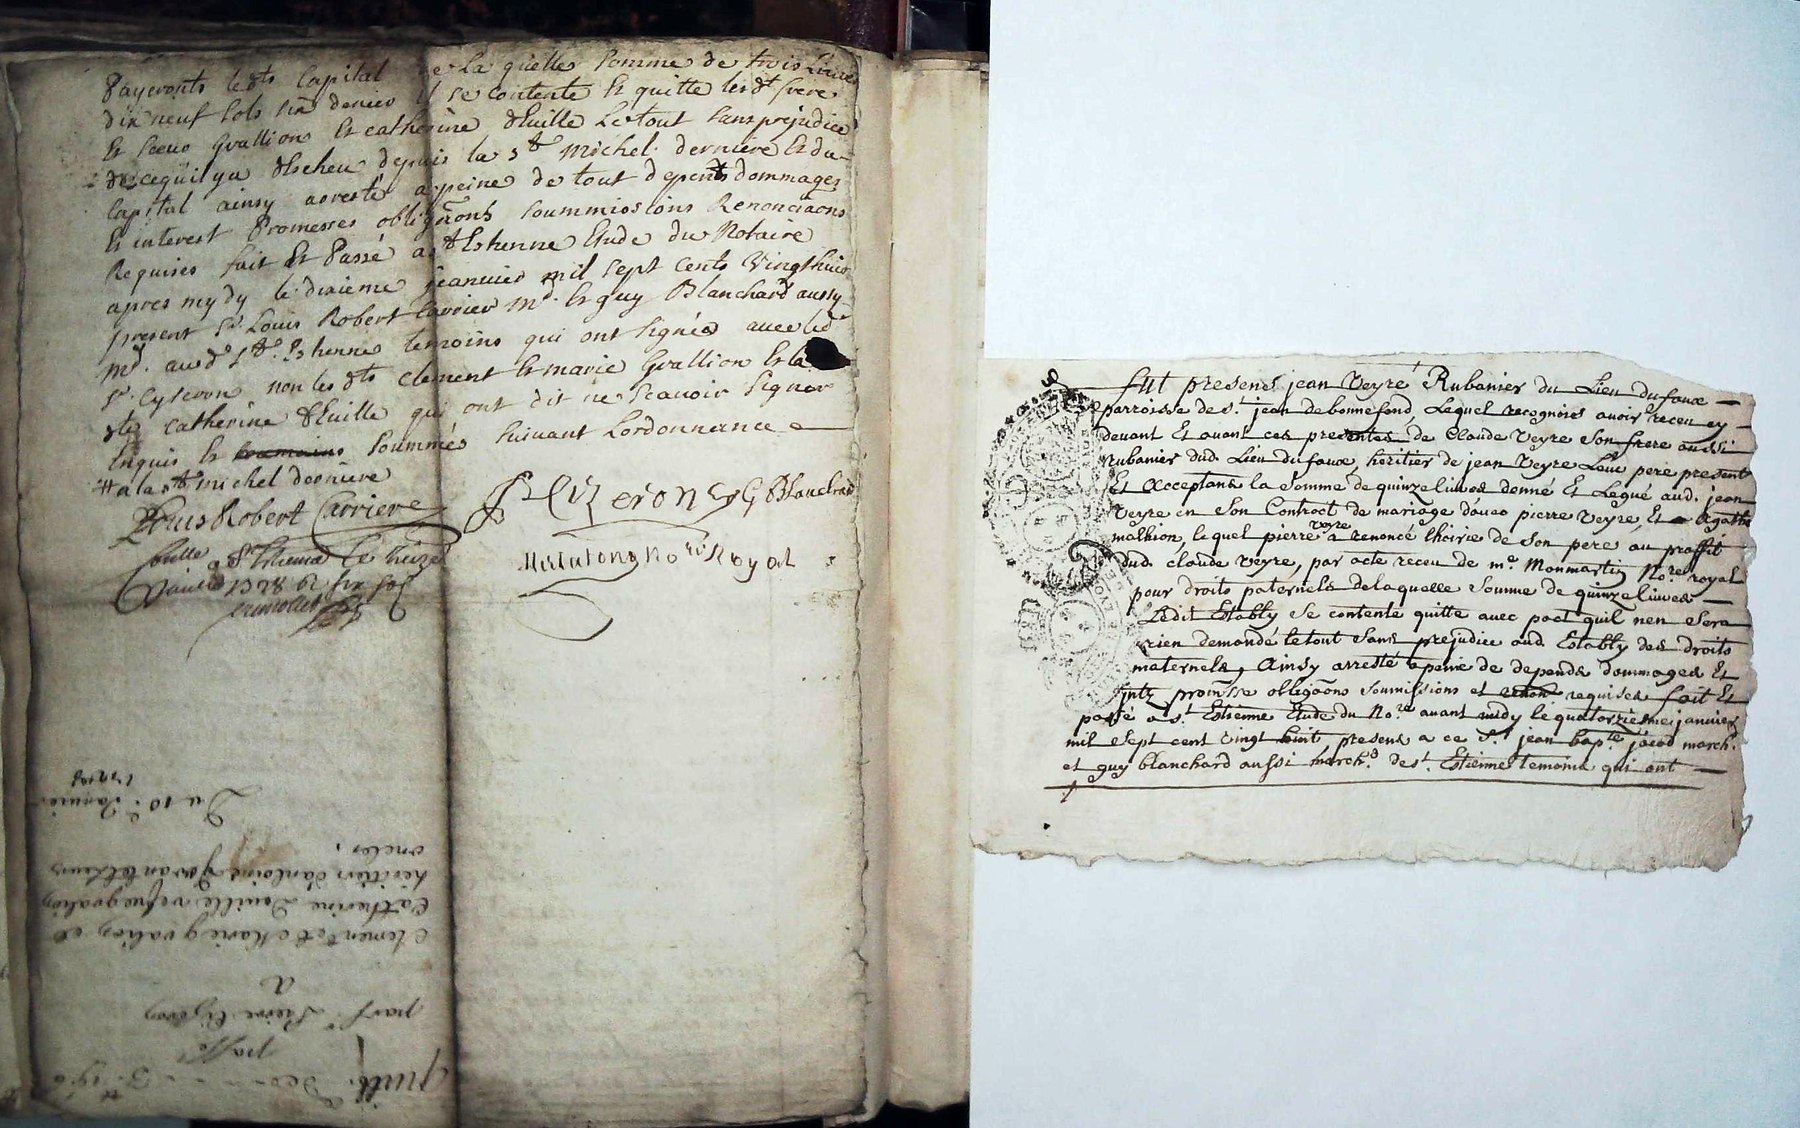 Payeronts leds Capital de la quelle somme de trois Livres
dix neuf sols six denier il se contente Et quitte lesdt frere
Et soeur Grallions Et catherine dhuille Le tout sans prejudice
de ce quil ya descheu depuis la st michel derniere Et du
Capital ainsy arresté a peine de tout depents dommages
Et interest Promesses obligãons soummissions Renonciãons
Requises fait Et Passé a st Estienne Etude du Notaire
apres mydy le dixieme jeanvier mil sept cents vingt huict
present sr. Louis Robert Carrier md. Et guy Blanchard aussy
md. aud st. Estienne temoins qui ont signés avec led
sr. Cyseron non les dts Clement Et marie Grallion Et la
dte Catherine dhuille qui ont dit ne scavoir signer
Enquis Et soummés suivant Lordonnance
a la st michel derniere
Louis Robert Carriere
P Cizeron G Blanchard
Matalong Nore Royal
Conllé a St Etienne le treize
Janvier 1728 Rx six sols
Du 10e Janvier
1728
Clement et Marie gralion et
Catherine Duille vefve gralion
héritiers d'antoine Gralion leurs
oncles,
a
par sr. Pierre Cizeron
passé
quitt. des
Fut present jean Veyre Rubanier du Lieu du faux
parroisse de st. jean de bonnefond, Lequel recognoit avoir receu cy
devant Et avant ces presentes de Claude Veyre Son frere aussi
Rubanier dud. Lieu du faux, heritier de jean Veyre Leur pere present
Et acceptant la somme de quinze livres donné Et Legué aud. jean
Veyre en Son Contract de mariage daveq pierre Veyre Et Agathe
malhion, lequel pierre veyre a renoncé lhoirie de Son pere au proffit
dud. claude veyre, par acte receu de me Monmartin Nore royal
pour droits paternels de laquelle Somme de quinze livres
Ledit Estably Se contente quitte avec pact quil nen Sera
rien demandé le tout Sans prejudice aud Estably des droits
maternels, Ainsy arresté apeine de depends dommages Et
jntz promesse obligãons soumissions et renon requises fait Et
passé a st. Estienne Etude du Nore avant midy le quatorzieme janvier
mil Sept cent vingt huit presens a ce Sr. jean bapte jacod marchd.
et guy blanchard aussi marchd. de st. Estienne temoins qui ont